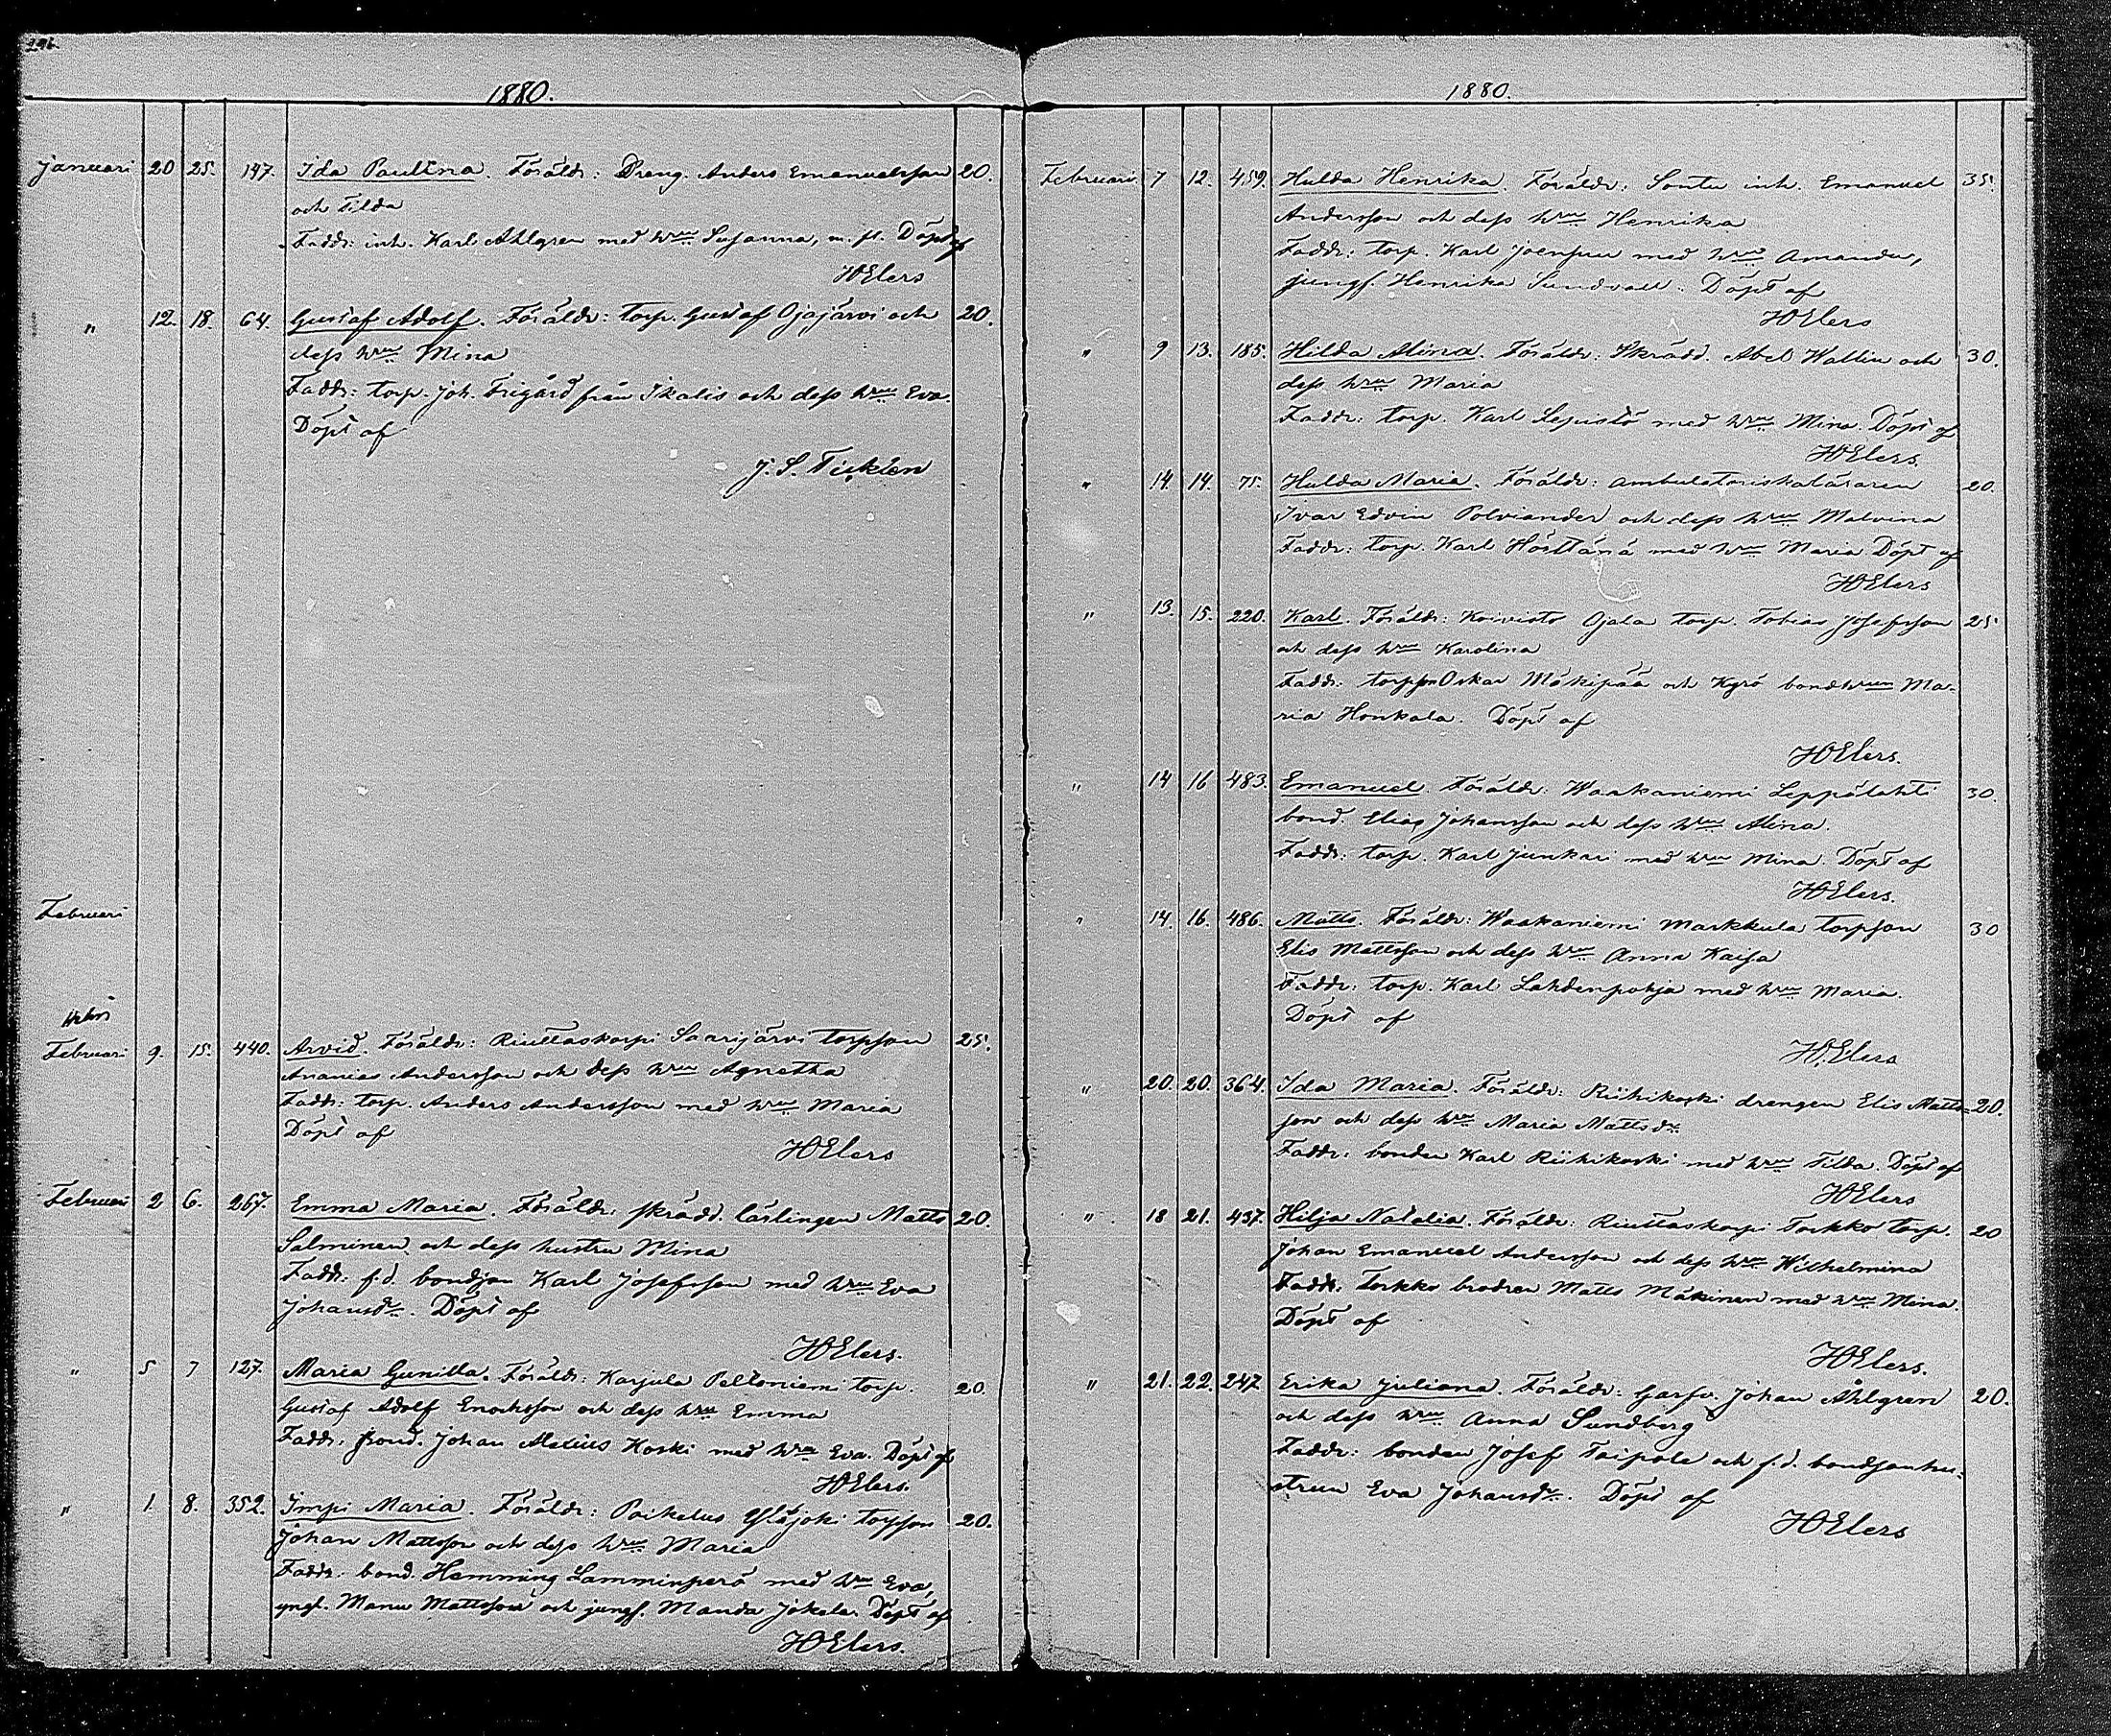 296.
1880.
Januari 20 25. 147. Ida Paulina. Föräldr: Dreng. Anders Emanuelsson 20.
och Tilda
Faddr: inh. Karl Ahlgren med hrun Susanna, m. fl. Döpt af
HElers
" 12. 18. 64. Gustaf Adolf. Föräldr: torp. Gustaf Ojajärvi och 20.
dess hru Mina
Faddr: torp. Joh. Frigård från Ikalis och dess hru Eva.
Döpt af
J. S.
Februari
Februari 9. 15. 440. Arvid. Föräldr: Riuttaskorpi Saarijärvi torpson 25.
Ananias Andersson och dess hru Agnetha
Faddr: torp. Anders Andersson med hru Maria
Döpt af
HElers
Februari 2 6. 267. Emma Maria. Föräldr: skrädd. lärlingen Matts 20.
Salminen och dess hustru Mina
Faddr: f.d. bondson Karl Josefsson med hru Eva
Johansdr. Döpt af
HElers.
" 5 7 127. Maria Gunilla. Föräldr: Karjula Peltoniemi torp. 20.
Gustaf Adolf Enochsson och dess hru Emma
Faddr: bond. Johan Koski med hru Eva. Döpt af
HElers.
" 1. 8. 352. Impi Maria. Föräldr: Poikelus Yläjoki torpson 20.
Johan Mattsson och dess hru Maria
Faddr: bond. Hemming Lamminperä med hru Eva,
yngl. Manu Mattsson och jungf. Manda Jokela. Döpt af
HElers.
1880.
Februari 7 12. 459. Hulda Henrika. Föräldr: Sontu inh. Emanuel 35.
Andersson och dess hru Henrika
Faddr: torp. Karl Joensuu med hru Amanda,
jungf. Henrika Sundvall. Döpt af
HElers
" 9 13. 185. Hilda Alina. Föräldr: Skrädd. Abel Wallin och 30.
dess hru Maria
Faddr: torp. Karl Lepistö med hru Mina. Döpt af
HElers.
" 14. 14. 75. Hulda Maria. Föräldr: ambulatoriskaläraren 20.
Ivar Edvin Polviander och dess hru Malvina
Faddr: torp. Karl Höittänä med hru Maria Döpt af
HElers
" 13. 15. 220. Karl. Föräldr: Koivisto Ojala torp. Tobias Josefsson 25.
och dess hru Karolina
Faddr: torpson Oskar Mäkipää och Kyrö bondhrun Ma-
ria Honkala. Döpt af
HElers.
" 14 16 483. Emanuel. Föräldr: Waakaniemi Leppälahti 30.
bond. Elias Johansson och dess hru Alina.
Faddr: torp. Karl Junkari med hru Mina. Döpt af
HElers.
" 14. 16. 486. Matts. Föräldr: Waakaniemi Markkula torpson 30
Elis Mattsson och dess hru Anna Kaisa
Faddr: torp. Karl Lahdenpohja med hru Maria.
Döpt af
H.Elers
" 20. 20. 364. Ida Maria. Föräldr: Riihikoski drengen Elis Matts- 20.
son och dess hru Maria Mattsdr.
Faddr: bonden Karl Riihikoski med hru Tilda. Döpt af
HElers
" 18 21. 437. Hilja Natalia. Föräldr: Riuttaskorpi Torkko torp. 20
Johan Emanuel Andersson och dess hru Wilhelmina
Faddr: Torkko brodren Matts Mäkinen med hru Mina.
Döpt af
HElers.
" 21. 22. 247. Erika Juliana. Föräldr: Garfv. Johan Ahlgren 20.
och dess hru Anna Sundberg
Faddr: bonden Josef Taipale och f.d. bondsonhu-
strun Eva Johansdr. Döpt af
HElers